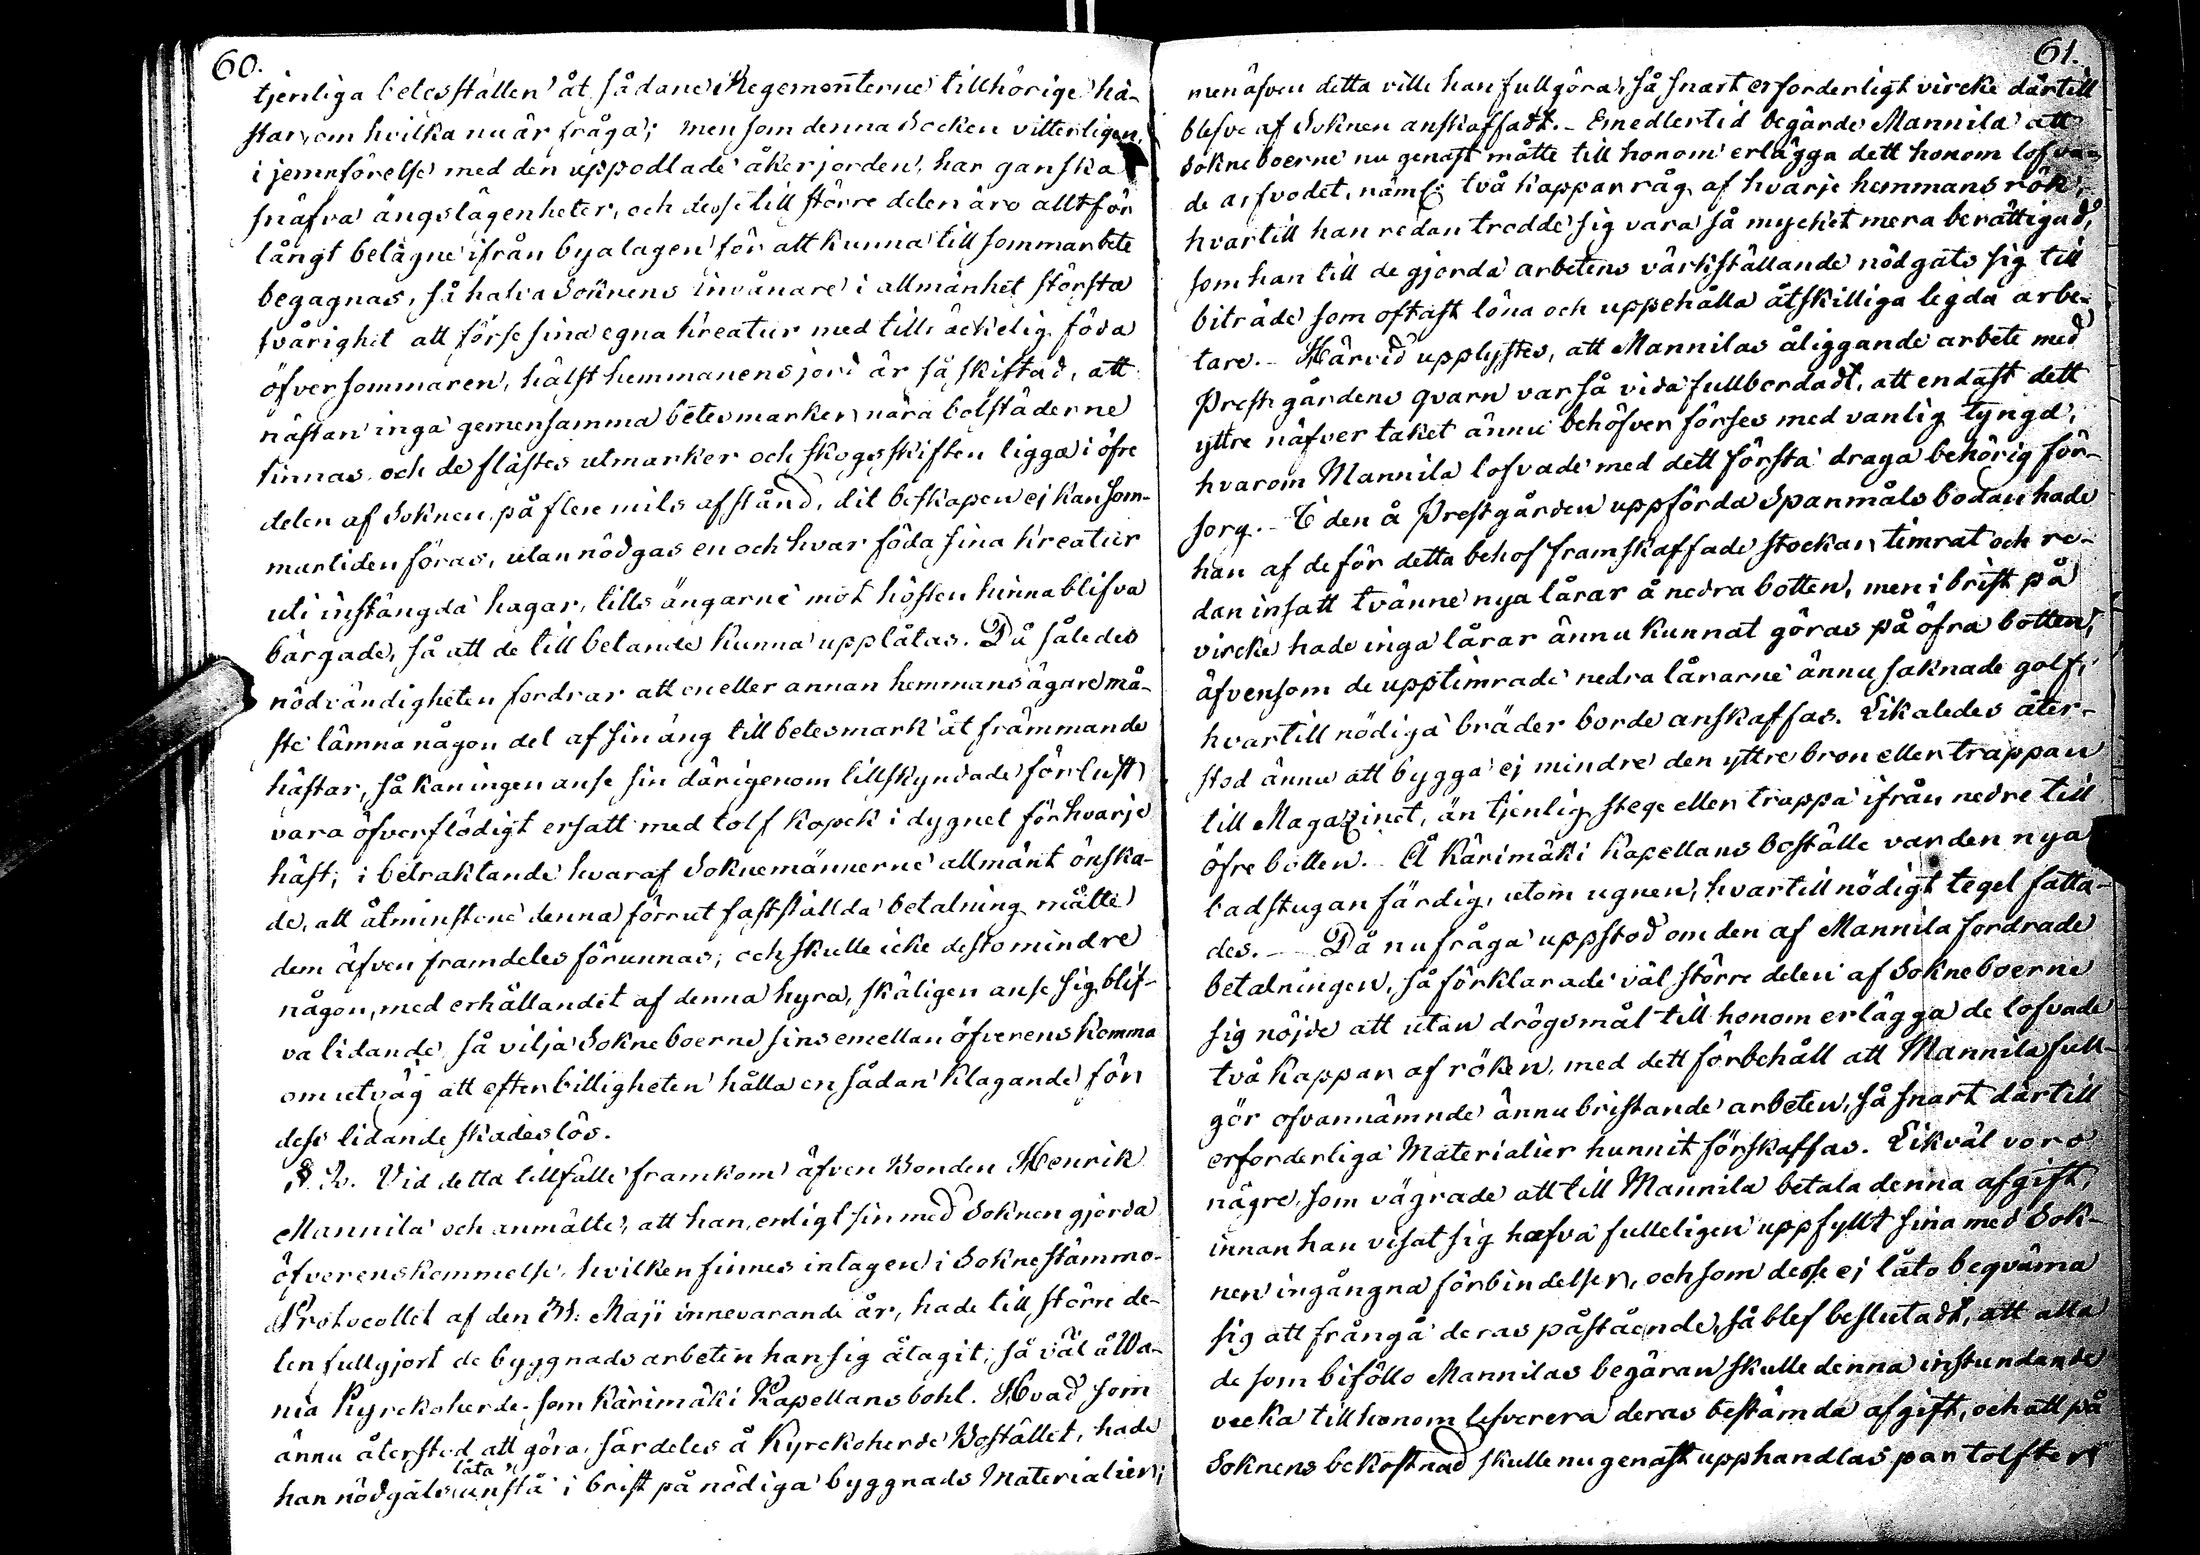 60.
tjenliga betesställen åt sådane Regementerne tillhörige hä-
star, om hvilka nu är fråga; men som denna Socken vitterligen,
i jemnförelse med den uppodlade åkerjorden, har ganska
snäfva ängslägenheter, och desse till större delen äro alltför
långt belägne ifrån byalagen för att kunna till sommarbete
begagnas, så hafva Soknens invånare i allmänhet största
svårighet att förse sina egna kreatur med tillräckelig föda
öfver sommaren, hälst hemmanens jord är så skiftad, att
nästan inga gemensamma betesmarker nära bolstäderne
finnas, och de fläste utmarker och skogsskiften ligga i öfre
delen af Soknen, på flere mils afstånd, dit boskapen ej kan som-
martiden föras, utan nödgas en och hvar föda sina kreatur
uti instängda hagar, tills ängarne mot hösten hinna blifva
bärgade, så att de till betande kunna upplåtas. Då således
nödvändigheten fordrar att en eller annan hemmansägare må-
ste lämna någon del af sin äng till betesmark åt främmande
hästar, så kan ingen anse sin därigenom tillskyndade förlust
vara öfverflödigt ersatt med tolf kopek i dygnet för hvarje
häst; i betraktande hvaraf Soknemännerne allmänt önska-
de, att åtminstone denna förrut fastställda betalning måtte
dem äfven framdeles förunnas; och skulle icke desto mindre
någon, med erhållandet af denna hyra, skäligen anse sig blif-
va lidande, så vilja Sokneboerne sins emellan öfverenskomma
om utväg att efter billigheten hålla en sådan klagande för
dess lidande skadeslös.
§ 2. Vid detta tillfälle framkom äfven Bonden Henrik
Mannila och anmälte, att han, enligt sin med Soknen gjorda
öfverenskommelse, hvilken finnes intagen i Soknestämmo-
Protocollet af den 31. Maji innevarande år, hade till större de-
len fullgjort de byggnads arbeten han sig åtagit, så väl å Wa-
nia Kyrckoherde- som Kärimäki Kapellansbohl. Hvad som
ännu återstod att göra, särdeles å Kyrckoherde Bostället, hade
låta
han nödgats anstå i brist på nödiga byggnads Materialier;
61.
men äfven detta ville han fullgöra, så snart erforderligt vircke därtill
blefve af Soknen anskaffadt. - Emedlertid begärde Mannila att
Sokneboerne nu genast måtte till honom erlägga dett honom lofva-
de arfvodet, näml. två kappar råg af hvarje hemmans rök,
hvartill han redan trodde sig vara så mycket mera berättigad,
som han till de gjorda arbetens värkställande nödgats sig till
biträde som oftast löna och uppehålla åtskilliga legda arbe-
tare. - Härvid upplystes, att Mannilas åliggande arbete med
Prestgårdens qvarn var så vida fullbordadt, att endast dett
yttre näfver taket ännu behöfver förses med vanlig tyngd,
hvarom Mannila lofvade med dett första draga behörig för-
sorg. - I den å Prestgården uppförda Spanmåls bodan hade
han af de för detta behof framskaffade stockar timrat och re-
dan insatt tvänne nya lårar å nedra botten, men i brist på
vircke hade inga lårar ännu kunnat göras på öfra botten,
äfvensom de upptimrade nedra lårarne ännu saknade golf,
hvartill nödiga bräder borde anskaffas. Likaledes åter-
stod ännu att bygga ej mindre den yttre bron eller trappan
till Magazinet, än tjenlig stege eller trappa ifrån nedre till
öfre botten. - Å Kärimäki Kapellans boställe var den nya
badstugan färdig, utom ugnen, hvartill nödigt tegel fatta-
des. - Då nu fråga uppstod om den af Mannila fordrade
betalningen, så förklarade väl större delen af Sokneboerne
sig nöjde att utan drögsmål till honom erlägga de lofvade
två kappar af röken, med dett förbehåll att Mannila full-
gör ofvannämnde ännu bristande arbeten, så snart därtill
erforderliga Materialier hunnit förskaffas. Likväl voro
någre, som vägrade att till Mannila betala denna afgift,
innan han visat sig hafva fulleligen uppfyllt sina med Sok-
nen ingångna förbindelser, och som desse ej låto beqväma
sig att frångå deras påstående, så blef beslutadt, att alla
de som biföllo Mannilas begäran skulle denna instundande
vecka till honom lefverera deras bestämda afgift, och att på
Soknens bekostnad skulle nu genast upphandlas par tolfter